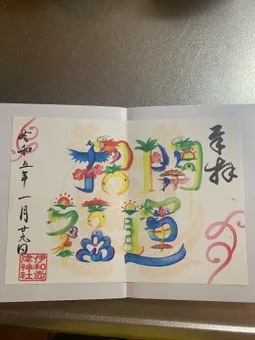 奉拝
開運
招福
令和五年 一月廿九日
伊和志
津神社